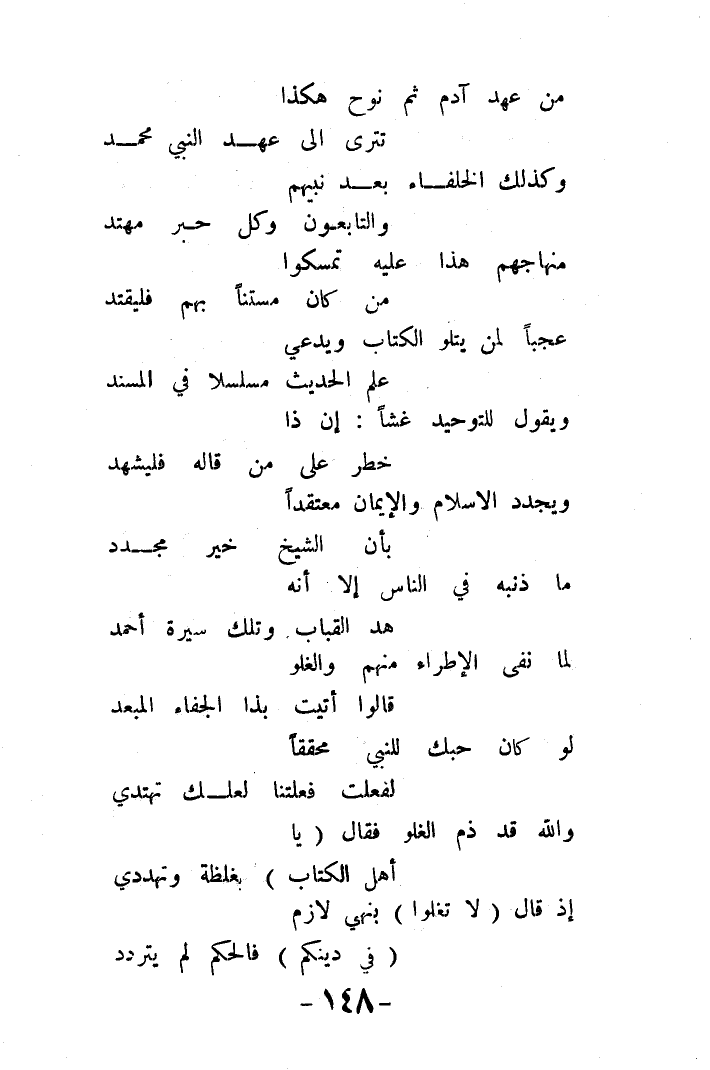 من عهد آدم ثم نوح هكذا
تترى الى عهد النبي محمد
وكذلك الخلفاء بعد نبيهم
والتابعون وكل حبر مهتد
منهاجهم هذا عليه تمسكوا
من كان مستناً بهم فليقتد
عجباً لمن يتلو الكتاب ويدعي
علم الحديث مسلسلا في المسند
ويقول للتوحيد غشاً : إن ذا
خطر على من قاله فليشهد
ويجدد الاسلام والإيمان معتقداً
بأن الشيخ خير مجدد
ما ذنبه في الناس إلا أنه
هد القباب وتلك سيرة أحمد
لما نفى الإطراء منهم والغلو
قالوا أتيت بذا الجفاء المبعد
لو كان حبك للنبي محققاً
لفعلت فعلتنا لعلك تهتدي
والله قد ذم الغلو فقال ( يا
أهل الكتاب ) بغلظة وتهددي
إذ قال ( لا تغلوا ) بنهي لازم
( في دينكم ) فالحكم لم يتردد
- ١٤٨ -